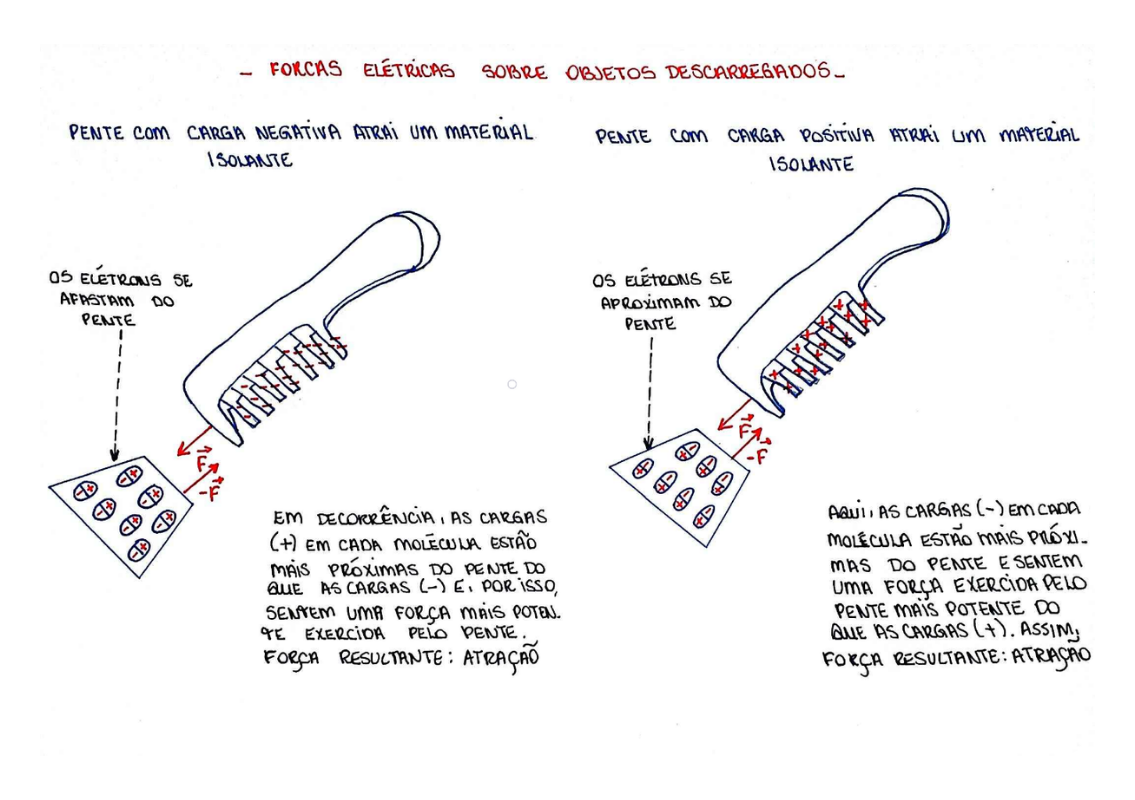 - FORCAS ELÉTRICAS SOBRE OBJETOS DESCARREGADOS -
PENTE COM CARGA NEGATIVA ATRAI UM MATERIAL
ISOLANTE
OS ELÉTRONS SE
AFASTAM DO
PENTE
F
-F
EM DECORRÊNCIA, AS CARGAS
(+) EM CADA MOLÉCULA ESTÃO
MAIS PRÓXIMAS DO PENTE DO
QUE AS CARGAS (-) E, POR ISSO,
SENTEM UMA FORÇA MAIS POTEN-
TE EXERCIDA PELO PENTE.
FORÇA RESULTANTE: ATRAÇÃO
PENTE COM CARGA POSITIVA ATRAI UM MATERIAL
ISOLANTE
OS ELÉTRONS SE
APROXIMAM DO
PENTE
F
-F
AQUI, AS CARGAS (-) EM CADA
MOLÉCULA ESTÃO MAIS PRÓXI-
MAS DO PENTE E SENTEM
UMA FORÇA EXERCIDA PELO
PENTE MAIS POTENTE DO
QUE AS CARGAS (+). ASSIM,
FORÇA RESULTANTE: ATRAÇÃO